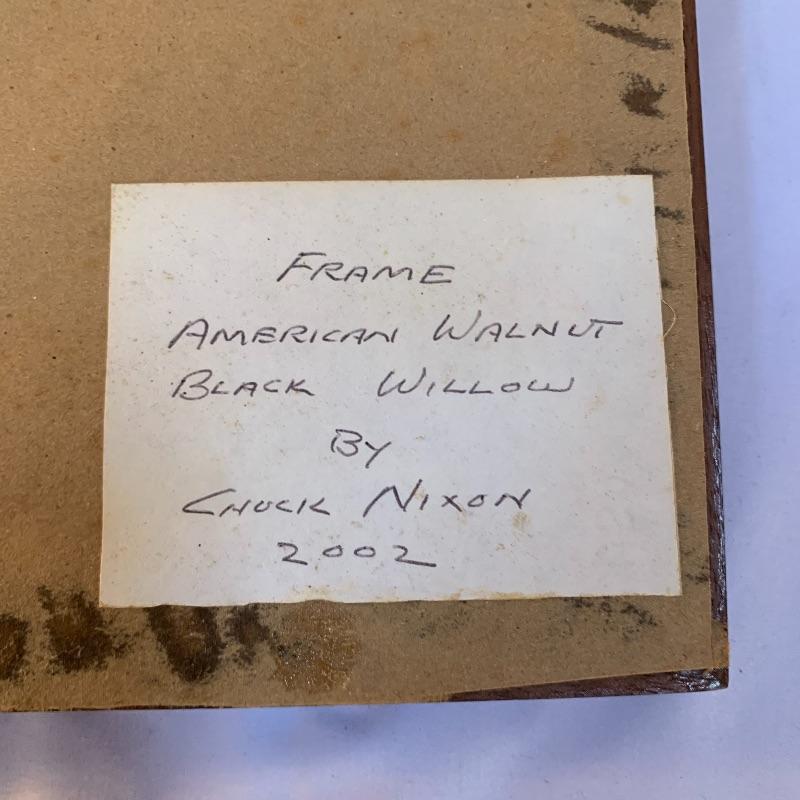 FRAME
AMERICAN WALNUT
BLACK WILLOW
BY
CHUCK NIXON
2002